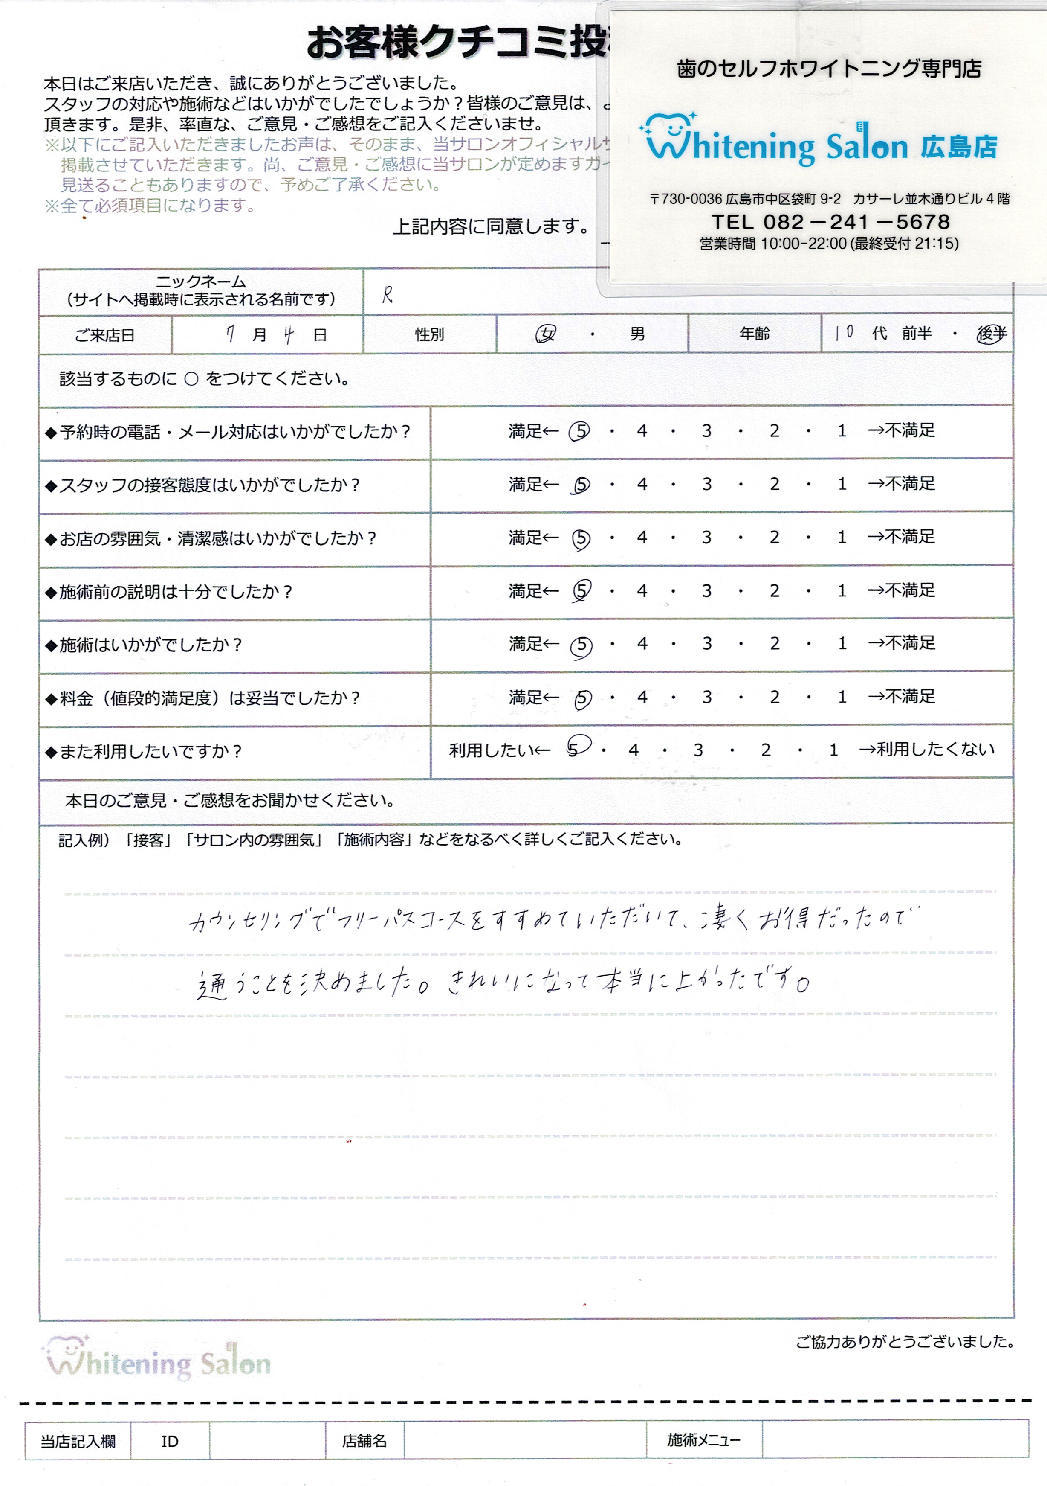 お客様クチコミ投
本日はご来店いただき、誠にありがとうございました。
スタッフの対応や施術などはいかがでしたでしょうか？皆様のご意見は、よ
頂きます。是非、率直な、ご意見・ご感想をご記入くださいませ。
※以下にご記入いただきましたお声は、そのまま、当サロンオフィシャルサ
掲載させていただきます。尚、ご意見・ご感想に当サロンが定めますガイ
見送ることもありますので、予めご了承ください。
※全て必須項目になります。
上記内容に同意します。
歯のセルフホワイトニング専門店
Whitening Salon 広島店
〒730-0036 広島市中区袋町 9-2 カサーレ並木通りビル 4 階
TEL 082－241－5678
営業時間 10:00-22:00 (最終受付 21:15)
ニックネーム
（サイトへ掲載時に表示される名前です） R
ご来店日 7 月 4 日 性別 女 ・ 男 年齢 10 代 前半 ・ 後半
該当するものに ○ をつけてください。
◆予約時の電話・メール対応はいかがでしたか？ 満足← 5 ・ 4 ・ 3 ・ 2 ・ 1 →不満足
◆スタッフの接客態度はいかがでしたか？ 満足← 5 ・ 4 ・ 3 ・ 2 ・ 1 →不満足
◆お店の雰囲気・清潔感はいかがでしたか？ 満足← 5 ・ 4 ・ 3 ・ 2 ・ 1 →不満足
◆施術前の説明は十分でしたか？ 満足← 5 ・ 4 ・ 3 ・ 2 ・ 1 →不満足
◆施術はいかがでしたか？ 満足← 5 ・ 4 ・ 3 ・ 2 ・ 1 →不満足
◆料金（値段的満足度）は妥当でしたか？ 満足← 5 ・ 4 ・ 3 ・ 2 ・ 1 →不満足
◆また利用したいですか？ 利用したい← 5 ・ 4 ・ 3 ・ 2 ・ 1 →利用したくない
本日のご意見・ご感想をお聞かせください。
記入例）「接客」「サロン内の雰囲気」「施術内容」などをなるべく詳しくご記入ください。
カウンセリングでフリーパスコースをすすめていただいて、凄くお得だったので
通うことを決めました。きれいになって本当に上がったです。
Whitening Salon
ご協力ありがとうございました。
当店記入欄 ID 店舗名 施術メニュー